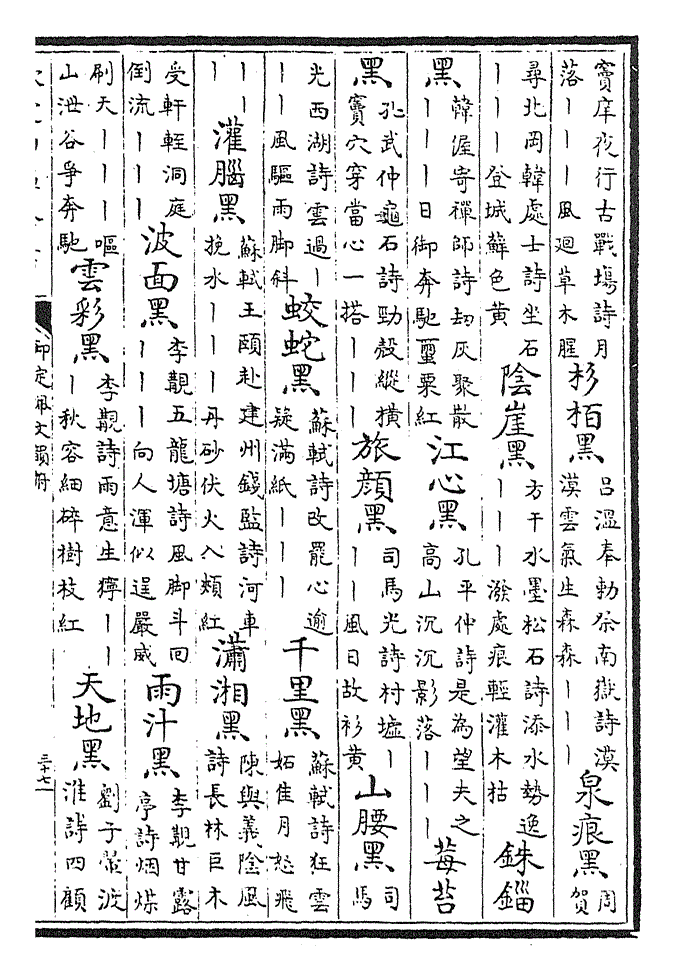 竇庠夜行古戰塲詩月
落丨丨丨風廻草木腥
杉栢黑
吕溫奉勅祭南嶽詩漠
漠雲氣生森森丨丨丨
泉痕黑
周
賀
尋北岡韓處士詩坐石
丨丨丨登城蘚色黄
陰崖黑
方干水墨松石詩添水勢逸
丨丨丨潑處痕輕灌木枯
銖錙
黑
韓渥寄禪師詩刼灰聚散
丨丨丨日御奔馳璽栗紅
江心黑
孔平仲詩是為望夫之
高山沉沉影落丨丨丨
莓苔
黑
孔武仲龜石詩勁殻縱横
竇穴穿當心一搭丨丨丨
旅顔黑
司馬光詩村墟丨
丨丨風日故衫黄
山腰黑
司
馬
光西湖詩雲過丨
丨丨風驅雨脚斜
蛟蛇黑
蘇軾詩改罷心逾
疑滿紙丨丨丨
千里黑
蘇軾詩狂雲
妬佳月怒飛
丨丨
丨
灌腦黑
蘇軾王頤赴建州錢監詩河車
挽水丨丨丨丹砂伏火入頰紅
瀟湘黑
陳與義陰風
詩長林巨木
受軒輊洞庭
倒流丨丨丨
波面黑
李覯五龍塘詩風脚斗回
丨丨丨向人渾似逞嚴威
雨汁黑
李覯甘露
亭詩烟煤
刷天丨丨丨嘔
山泄谷爭奔馳
雲彩黑
李覯詩雨意生獰丨丨
丨秋容細碎樹枝紅
天地黑
劉子翬波
淮詩四顧
御定佩文韻府
三十七